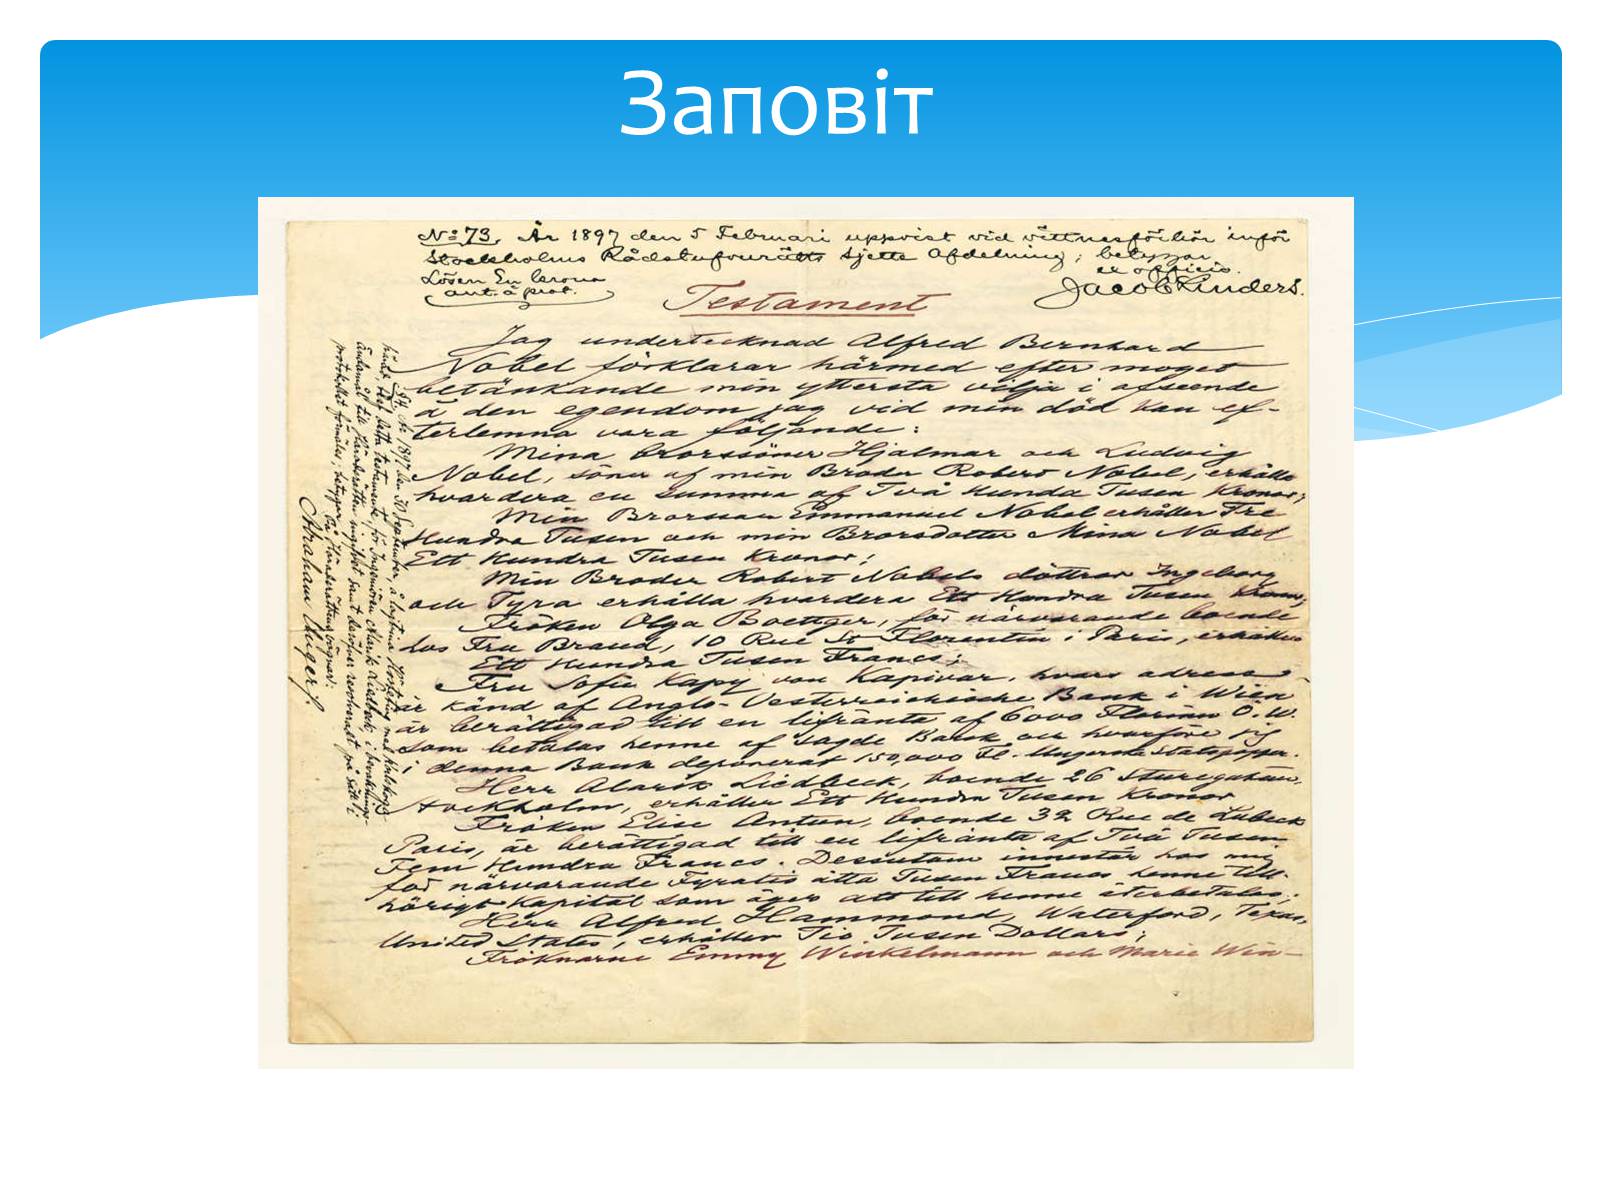 Заповіт
No 73. År 1897 den 5 Februari uppvist vid vittnesförhör inför
Stockholms Rådstufvurätts sjette Afdelning; betygar
Lösen En krona
ex officio.
aut. à prot.
Jacob Kinders.
Testament
Jag undertecknad Alfred Bernhard
Nobel förklarar härmed efter moget
betänkande min yttersta vilja i afseende
å den egendom jag vid min död kan ef-
terlemna vara följande:
Mina Brorssöner Hjalmar och Ludvig
Nobel, söner af min Broder Robert Nobel, erhålla
hvardera en summa af Två Hundra Tusen Kronor;
Min Brorsson Emmanuel Nobel erhåller Tre
Hundra Tusen och min Brorsdotter Mina Nobel
Ett Hundra Tusen Kronor;
Min Broder Robert Nobels döttrar Ingeborg
och Tyra erhålla hvardera Ett Hundra Tusen Kronor;
Fröken Olga Boettger, för närvarande boende
hos Fru Brand, 10 Rue St Florentin i Paris, erhåller
Ett Hundra Tusen Francs;
Fru Sofie Kapy von Kapivar, hvars adress
är känd af Anglo-Oesterreichische Bank i Wien
är berättigad till en lifränta af 6000 Florins Ö.W.
som betalas henne af sagde Bank och hvarföre jag
i denna Bank deponerat 150,000 Fl. i Ungerska Statspapper.
Herr Alarik Liedbeck, boende 26 Sturegatan,
Stockholm, erhåller Ett Hundra Tusen Kronor
Fröken Elise Antun, boende 32 Rue de Lubeck
Paris, är berättigad till en lifränta af Två Tusen
Fem Hundra Francs. Dessutom innestår hos mig
för närvarande Fyratio åtta Tusen Francs henne till-
hörigt Kapital som äger att till henne återbetalas;
Herr Alfred Hammond, Waterford, Texas,
United States, erhåller Tio Tusen Dollars;
Fröknarne Emmy Winkelmann och Marie Win-